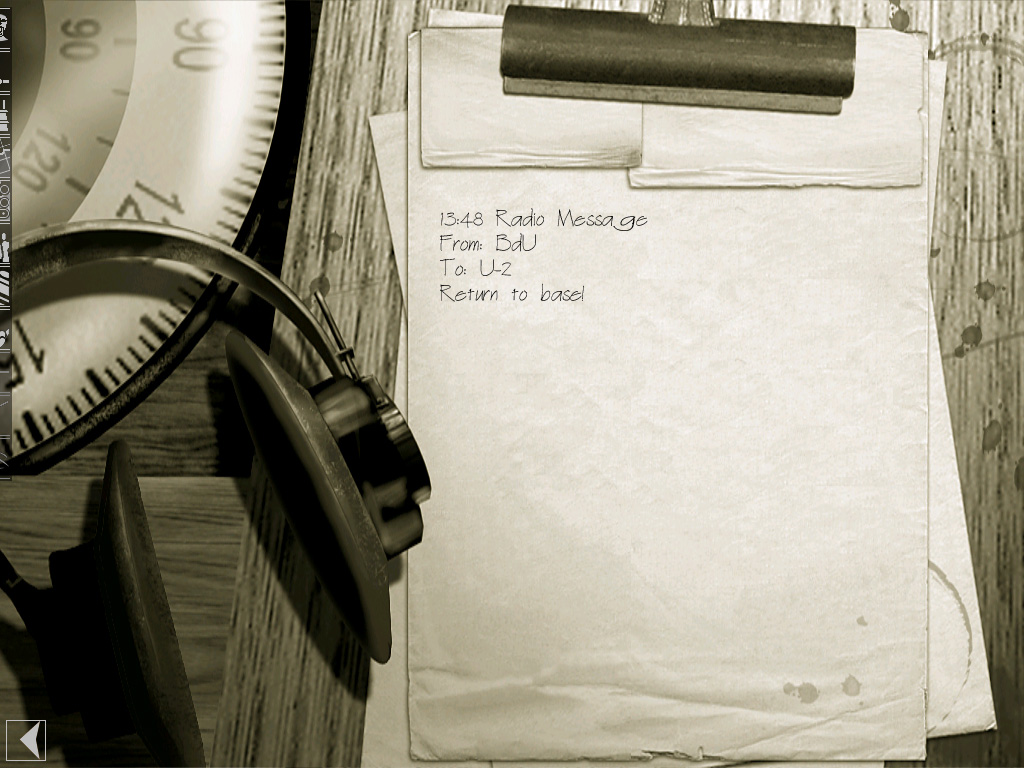 90
90
120
12
16
13:48 Radio Message
From: BdU
To: U-2
Return to base!